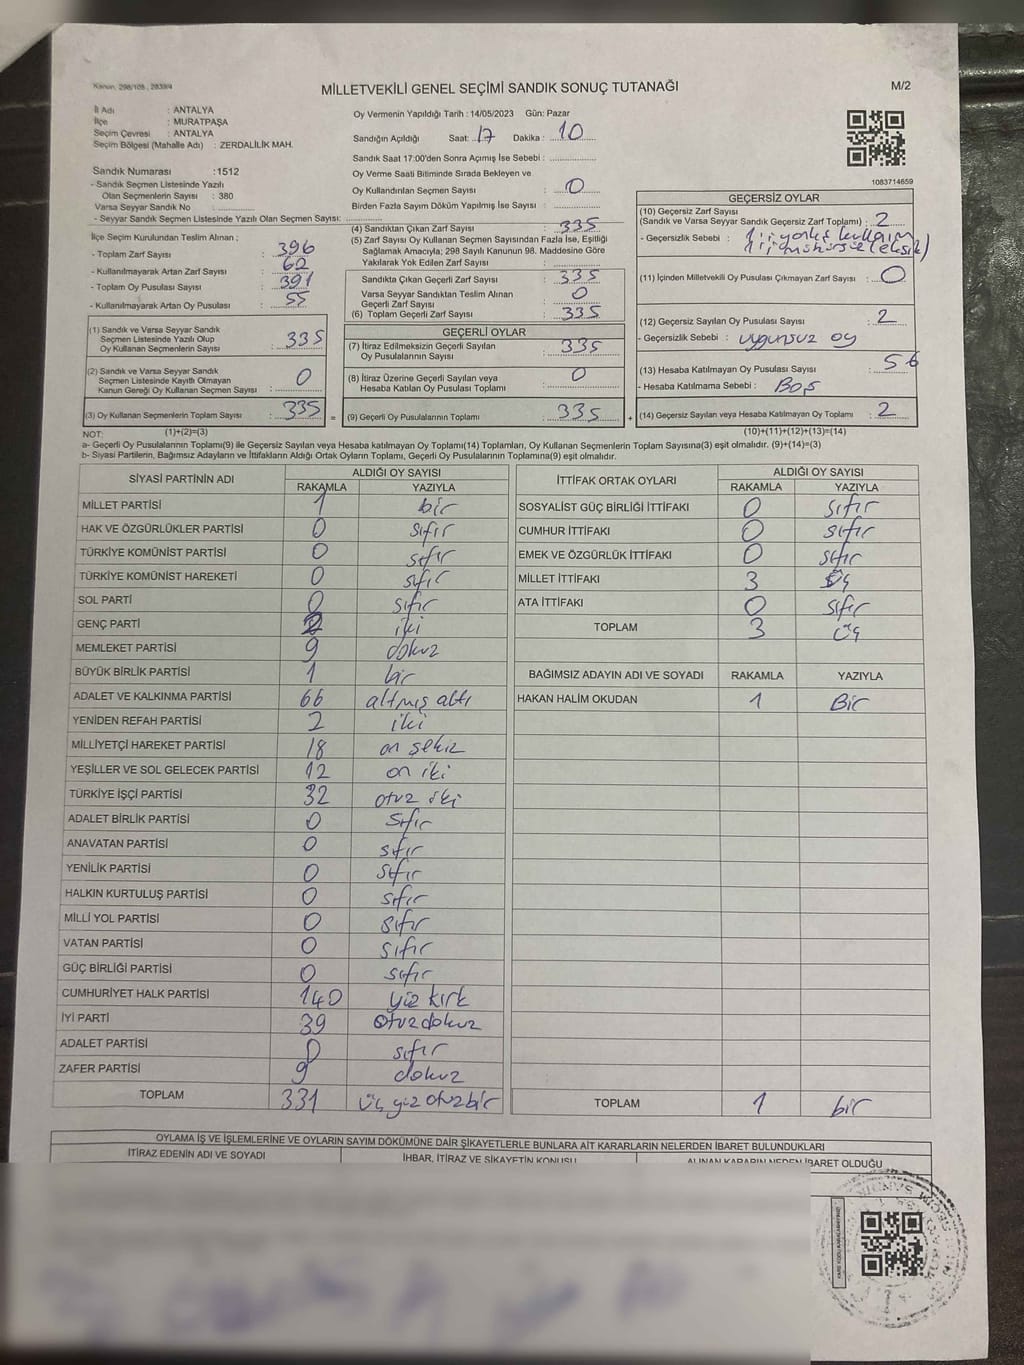 Kanun, 298/105 , 2839/4
MİLLETVEKİLİ GENEL SEÇİMİ SANDIK SONUÇ TUTANAĞI
M/2
İl Adı : ANTALYA
İlçe : MURATPAŞA
Seçim Çevresi : ANTALYA
Seçim Bölgesi (Mahalle Adı) : ZERDALİLİK MAH.
Sandık Numarası : 1512
- Sandık Seçmen Listesinde Yazılı
Olan Seçmenlerin Sayısı : 380
Varsa Seyyar Sandık No :
- Seyyar Sandık Seçmen Listesinde Yazılı Olan Seçmen Sayısı:
Oy Vermenin Yapıldığı Tarih : 14/05/2023 Gün: Pazar
Sandığın Açıldığı Saat: 17 Dakika : 10
Sandık Saat 17:00'den Sonra Açımış İse Sebebi :
Oy Verme Saati Bitiminde Sırada Bekleyen ve
Oy Kullandırılan Seçmen Sayısı : 0
Birden Fazla Sayım Döküm Yapılmış İse Sayısı :
1083714659
İlçe Seçim Kurulundan Teslim Alınan ;
- Toplam Zarf Sayısı : 396
- Kullanılmayarak Artan Zarf Sayısı : 62
- Toplam Oy Pusulası Sayısı : 391
- Kullanılmayarak Artan Oy Pusulası : 55
(1) Sandık ve Varsa Seyyar Sandık
Seçmen Listesinde Yazılı Olup
Oy Kullanan Seçmenlerin Sayısı : 335
(2) Sandık ve Varsa Seyyar Sandık
Seçmen Listesinde Kayıtlı Olmayan
Kanun Gereği Oy Kullanan Seçmen Sayısı : 0
(3) Oy Kullanan Seçmenlerin Toplam Sayısı : 335 =
(1)+(2)=(3)
(4) Sandıktan Çıkan Zarf Sayısı : 335
(5) Zarf Sayısı Oy Kullanan Seçmen Sayısından Fazla İse, Eşitliği
Sağlamak Amacıyla; 298 Sayılı Kanunun 98. Maddesine Göre
Yakılarak Yok Edilen Zarf Sayısı :
Sandıkta Çıkan Geçerli Zarf Sayısı : 335
Varsa Seyyar Sandıktan Teslim Alınan
Geçerli Zarf Sayısı : 0
(6) Toplam Geçerli Zarf Sayısı : 335
GEÇERLİ OYLAR
(7) İtiraz Edilmeksizin Geçerli Sayılan
Oy Pusulalarının Sayısı : 335
(8) İtiraz Üzerine Geçerli Sayılan veya
Hesaba Katılan Oy Pusulası Toplamı : 0
(9) Geçerli Oy Pusulalarının Toplamı : 335 +
GEÇERSİZ OYLAR
(10) Geçersiz Zarf Sayısı
(Sandık ve Varsa Seyyar Sandık Geçersiz Zarf Toplamı) : 2
- Geçersizlik Sebebi :
(11) İçinden Milletvekili Oy Pusulası Çıkmayan Zarf Sayısı : 0
(12) Geçersiz Sayılan Oy Pusulası Sayısı : 2
- Geçersizlik Sebebi : uygunsuz oy
(13) Hesaba Katılmayan Oy Pusulası Sayısı : 56
- Hesaba Katılmama Sebebi : Boş
(14) Geçersiz Sayılan veya Hesaba Katılmayan Oy Toplamı : 2
(10)+(11)+(12)+(13)=(14)
NOT:
a- Geçerli Oy Pusulalarının Toplamı(9) ile Geçersiz Sayılan veya Hesaba katılmayan Oy Toplamı(14) Toplamları, Oy Kullanan Seçmenlerin Toplam Sayısına(3) eşit olmalıdır. (9)+(14)=(3)
b- Siyasi Partilerin, Bağımsız Adayların ve İttifakların Aldığı Ortak Oyların Toplamı, Geçerli Oy Pusulalarının Toplamına(9) eşit olmalıdır.
SİYASİ PARTİNİN ADI ALDIĞI OY SAYISI
RAKAMLA YAZIYLA
MİLLET PARTİSİ 1 bir
HAK VE ÖZGÜRLÜKLER PARTİSİ 0 sıfır
TÜRKİYE KOMÜNİST PARTİSİ 0 sıfır
TÜRKİYE KOMÜNİST HAREKETİ 0 sıfır
SOL PARTİ 0 sıfır
GENÇ PARTİ 2 iki
MEMLEKET PARTİSİ 9 dokuz
BÜYÜK BİRLİK PARTİSİ 1 bir
ADALET VE KALKINMA PARTİSİ 66 altmış altı
YENİDEN REFAH PARTİSİ 2 iki
MİLLİYETÇİ HAREKET PARTİSİ 18 on sekiz
YEŞİLLER VE SOL GELECEK PARTİSİ 12 on iki
TÜRKİYE İŞÇİ PARTİSİ 32 otuz iki
ADALET BİRLİK PARTİSİ 0 sıfır
ANAVATAN PARTİSİ 0 sıfır
YENİLİK PARTİSİ 0 sıfır
HALKIN KURTULUŞ PARTİSİ 0 sıfır
MİLLİ YOL PARTİSİ 0 sıfır
VATAN PARTİSİ 0 sıfır
GÜÇ BİRLİĞİ PARTİSİ 0 sıfır
CUMHURİYET HALK PARTİSİ 140 yüz kırk
İYİ PARTİ 39 otuz dokuz
ADALET PARTİSİ 0 sıfır
ZAFER PARTİSİ 9 dokuz
TOPLAM 331 üç yüz otuz bir
İTTİFAK ORTAK OYLARI ALDIĞI OY SAYISI
RAKAMLA YAZIYLA
SOSYALİST GÜÇ BİRLİĞİ İTTİFAKI 0 sıfır
CUMHUR İTTİFAKI 0 sıfır
EMEK VE ÖZGÜRLÜK İTTİFAKI 0 sıfır
MİLLET İTTİFAKI 3 üç
ATA İTTİFAKI 0 sıfır
TOPLAM 3 üç
BAĞIMSIZ ADAYIN ADI VE SOYADI RAKAMLA YAZIYLA
HAKAN HALİM OKUDAN 1 Bir
TOPLAM 1 bir
OYLAMA İŞ VE İŞLEMLERİNE VE OYLARIN SAYIM DÖKÜMÜNE DAİR ŞİKAYETLERLE BUNLARA AİT KARARLARIN NELERDEN İBARET BULUNDUKLARI
İTİRAZ EDENİN ADI VE SOYADI İHBAR, İTİRAZ VE ŞİKAYETİN KONUSU ALINAN KARARIN NEDEN İBARET OLDUĞU